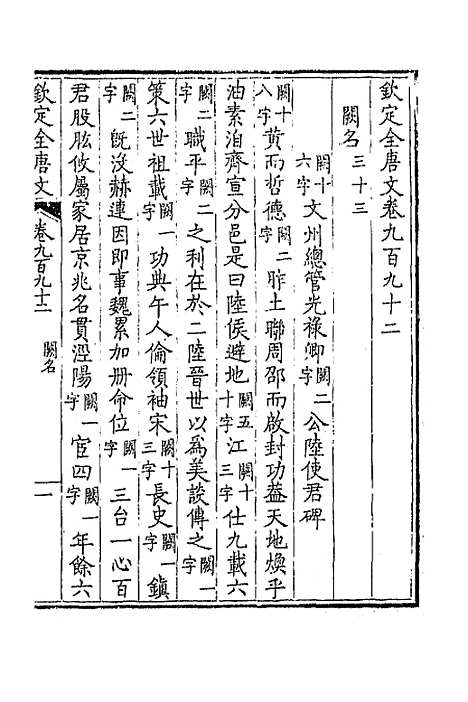 欽定全唐文卷九百九十二
闕名三十三
闕十六字文州總管光祿卿闕二字公陸使君碑
闕十八字黃而哲德闕二字胙土聯周邵而啟封功葢天地煥乎
油素洎齊宣分邑是曰陸侯避地闕五十字江闕十三字仕九載六
闕二字職平闕二字之利在於二陸晉世以為美談傳之闕一字
策六世祖載闕一字功典午人倫領袖宋闕十三字長史闕一字鎮
闕二字旣沒赫連因即事魏累加册命位闕一字三台一心百
君股肱攸屬家居京兆名貫涇陽闕一字宦四闕一字年餘六
欽定全唐文 卷九百九十二 闕名 一